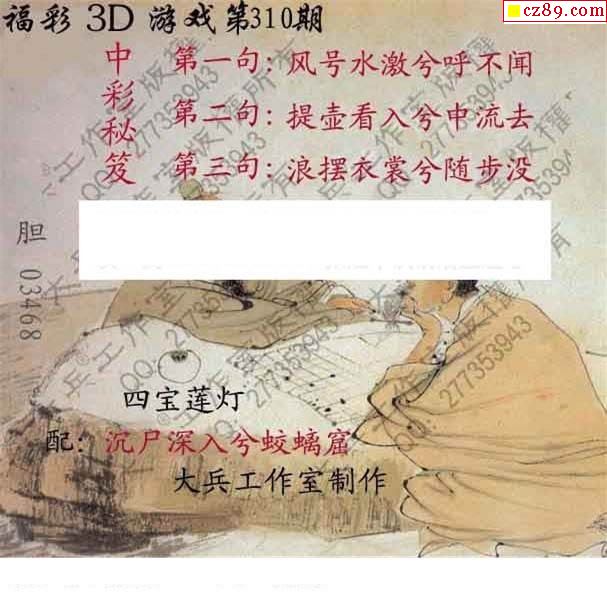 cz89.com
福彩 3D 游戏第310期
中彩秘笈
第一句:风号水激兮呼不闻
第二句:提壶看入兮中流去
第三句:浪摆衣裳兮随步没
胆 03468
四宝莲灯
配:沉尸深入兮蛟螭窟
大兵工作室制作
大兵工作室版權所有
QQ:277353943